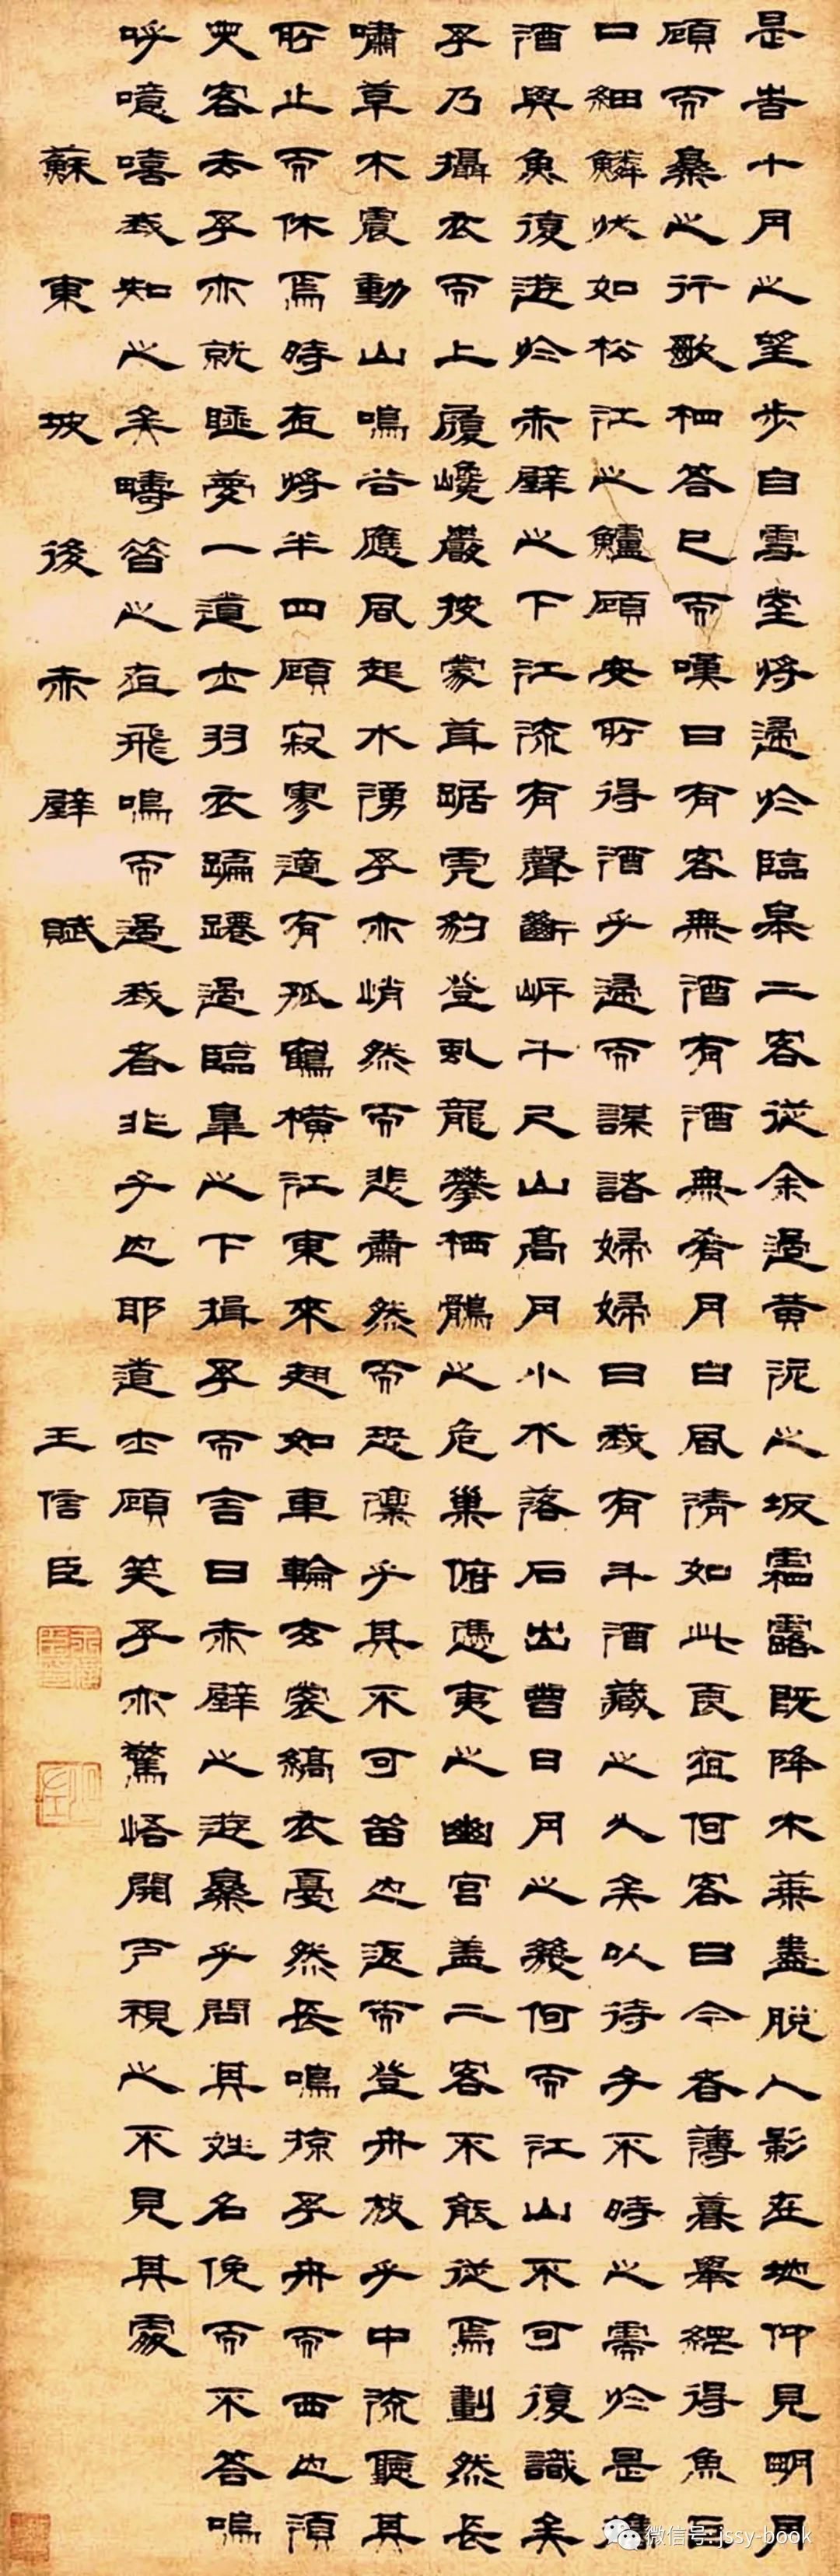 是旹十月之望步自雪堂將歸於臨皋二客從余過黃泥之坂霜露既降木葉盡脫人影在地仰見明月
顧而樂之行歌相答已而嘆曰有客無酒有酒無肴月白風清如此良夜何客曰今者薄暮舉網得魚巨
口細鱗狀如松江之鱸顧安所得酒乎歸而謀諸婦婦曰我有斗酒藏之久矣以待子不時之需於是攜
酒與魚復遊於赤壁之下江流有聲斷岸千尺山高月小水落石出曾日月之幾何而江山不可復識矣
予乃攝衣而上履巉巖披蒙茸踞虎豹登虬龍攀栖鶻之危巢俯憑夷之幽宮蓋二客不能從焉劃然長
嘯草木震動山鳴谷應風起水湧予亦悄然而悲肅然而恐凜乎其不可留也返而登舟放乎中流聽其
所止而休焉時夜將半四顧寂寥適有孤鶴橫江東來翅如車輪玄裳縞衣戛然長鳴掠予舟而西也須
臾客去予亦就睡夢一道士羽衣蹁躚過臨皋之下揖予而言曰赤壁之遊樂乎問其姓名俛而不答嗚
呼噫嘻我知之矣疇昔之夜飛鳴而過我者非子也耶道士顧笑予亦驚悟開戶視之不見其處
蘇東坡後赤壁賦 王信臣
微信号: jssy-book